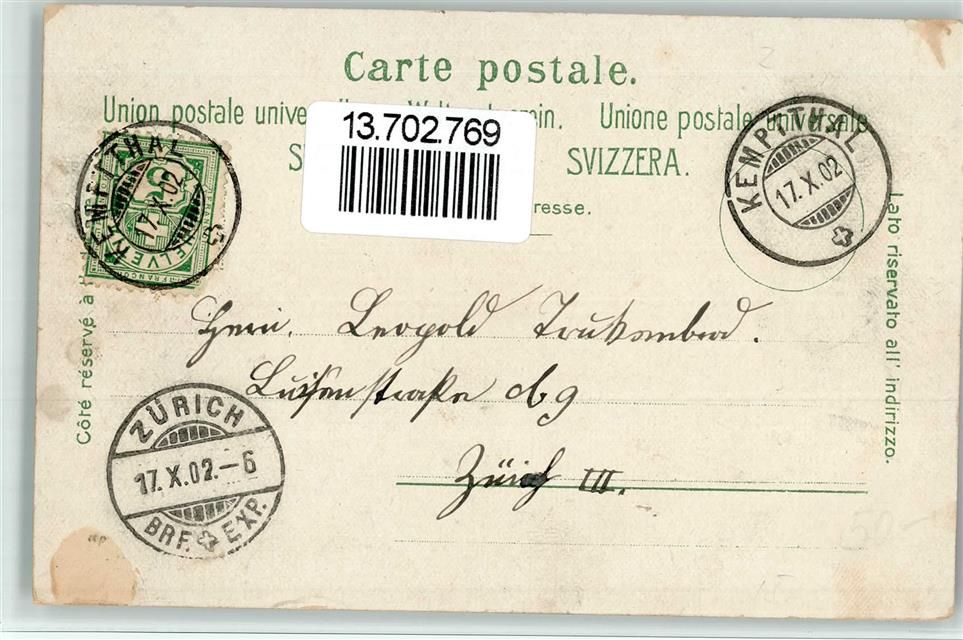 Carte postale.
Union postale unive ein. Unione postale universale
S SVIZZERA.
resse.
13.702.769
KEMPTTHAL
17.X.02
HELVE
FRANCO
KEMPTTHAL
17.X.02
Côté réservé à
Lato riservato all' indirizzo.
Herrn. Leopold
Luisenstraße
Zürich III.
ZÜRICH
17.X.02.-6
BRF. EXP.